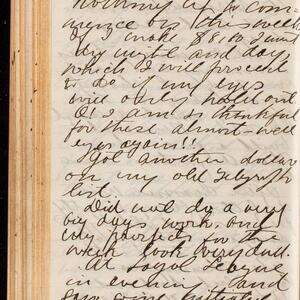 nothing up to com-
mence on this week
If I make $8.10 I must
dig night and day
which I will proceed
to do if my eyes
will only hold out.
O! I am so thankful
for these almost-well
eyes again!!
I got another dollar
on my old Telegraph
list.
Did not do a very
big days work, and
my prospects for the
week look very dull.
At Loyal League
in evening and
saw some